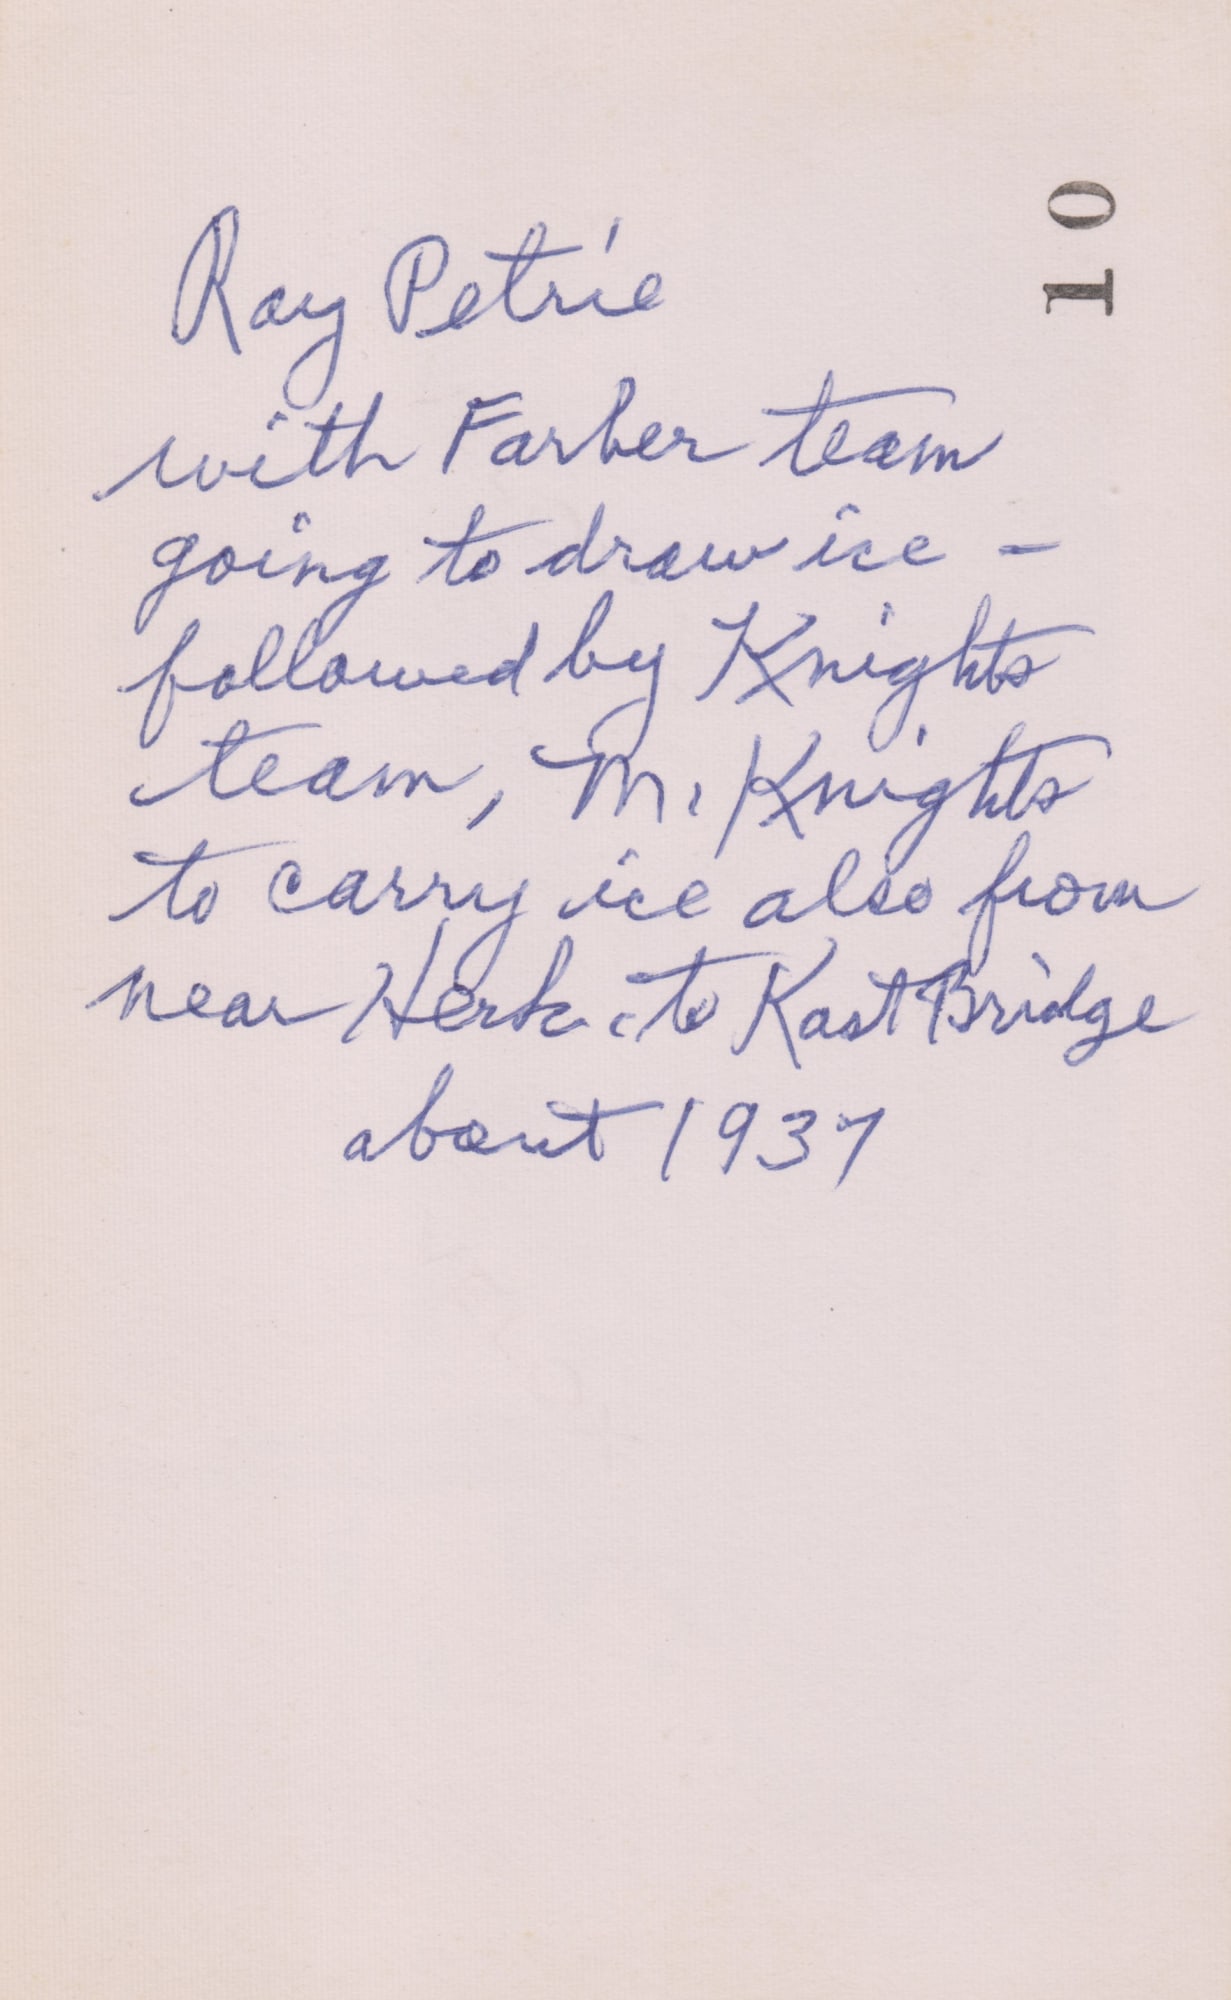 10
Ray Petrie
with Farber team
going to draw ice -
followed by Knights
team, M. Knights
to carry ice also from
near Herk. to Kast Bridge
about 1937